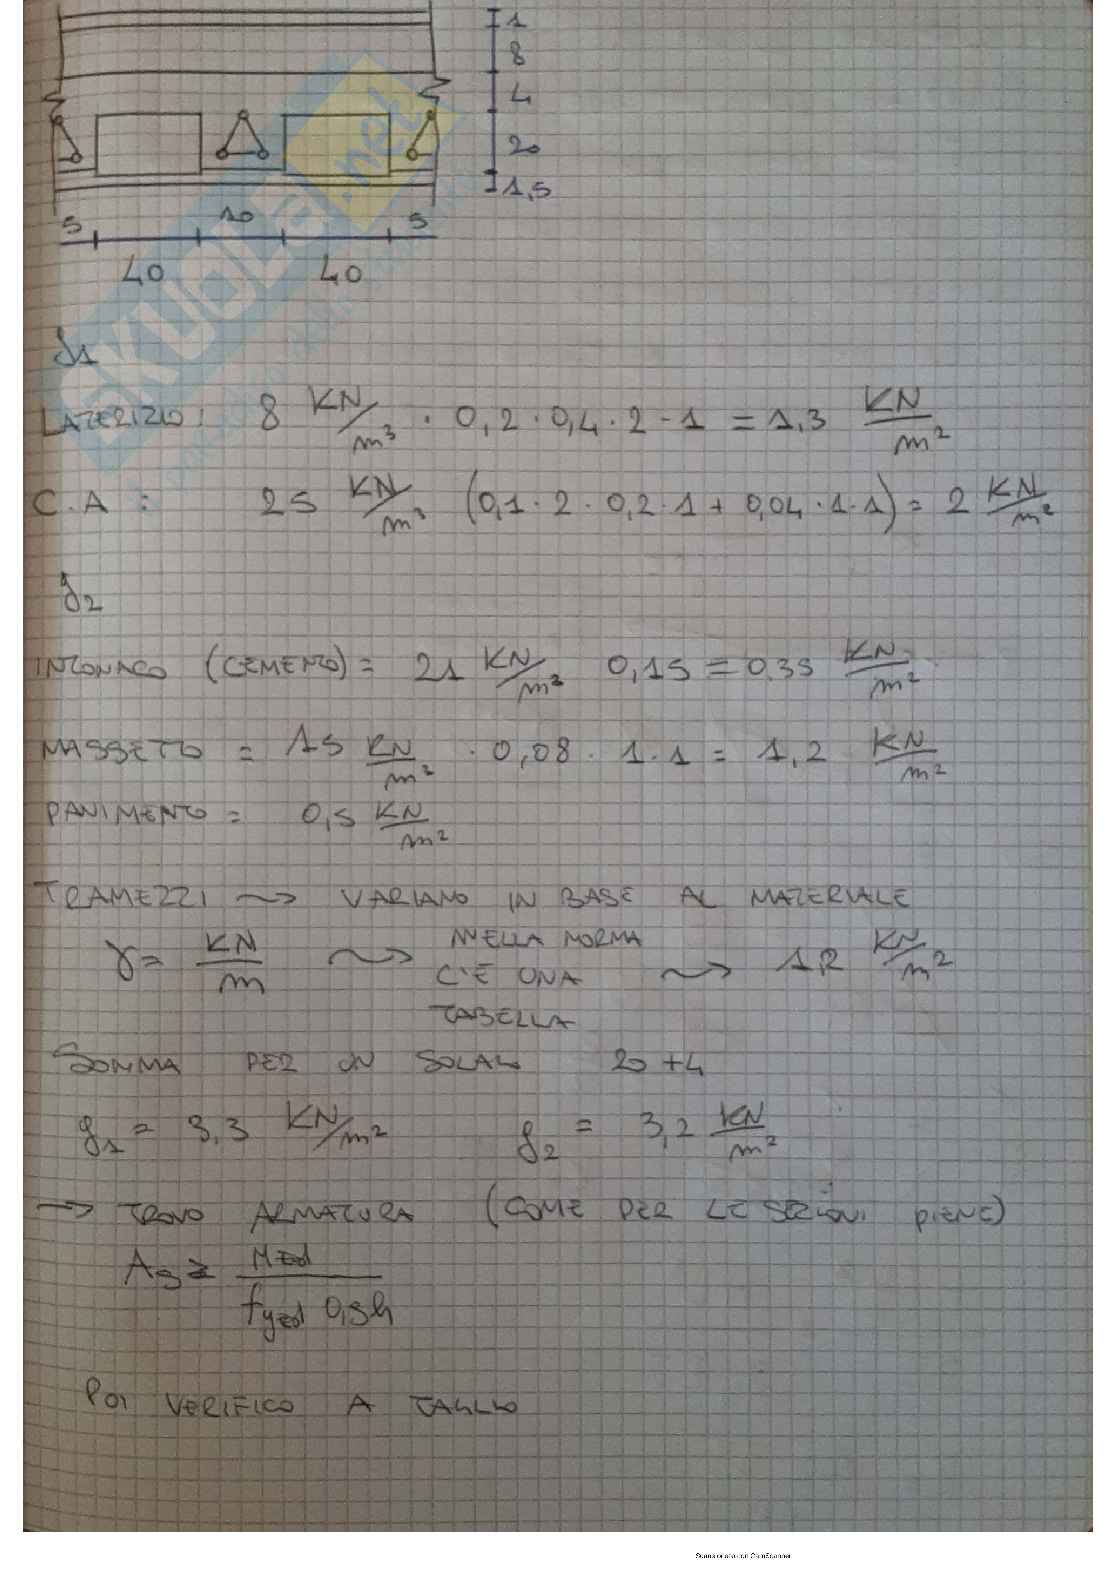 1
8
4
20
1,5
5 10 5
40 40
g1
LATERIZIO: 8 KN/m³ · 0,2 · 0,4 · 2 · 1 = 1,3 KN/m²
C.A: 25 KN/m³ (0,1 · 2 · 0,2 · 1 + 0,04 · 1 · 1) = 2 KN/m²
g2
INTONACO (CEMENTO) = 21 KN/m³ 0,15 = 0,35 KN/m²
MASSETO = 15 KN/m² · 0,08 · 1 · 1 = 1,2 KN/m²
PAVIMENTO = 0,5 KN/m²
TRAMEZZI ~> VARIANO IN BASE AL MATERIALE
γ = KN/m ~> NELLA NORMA C'È UNA TABELLA ~> KN/m²
SOMMA PER UN SOLAIO 20 + 4
g1 = 3,3 KN/m² g2 = 3,2 KN/m²
→ TROVO ARMATURA (COME PER LE SEZIONI PIENE)
As ≥ MEd / fyd 0,9h
POI VERIFICO A TAGLIO
SKUOLA.net
Scansionato con CamScanner